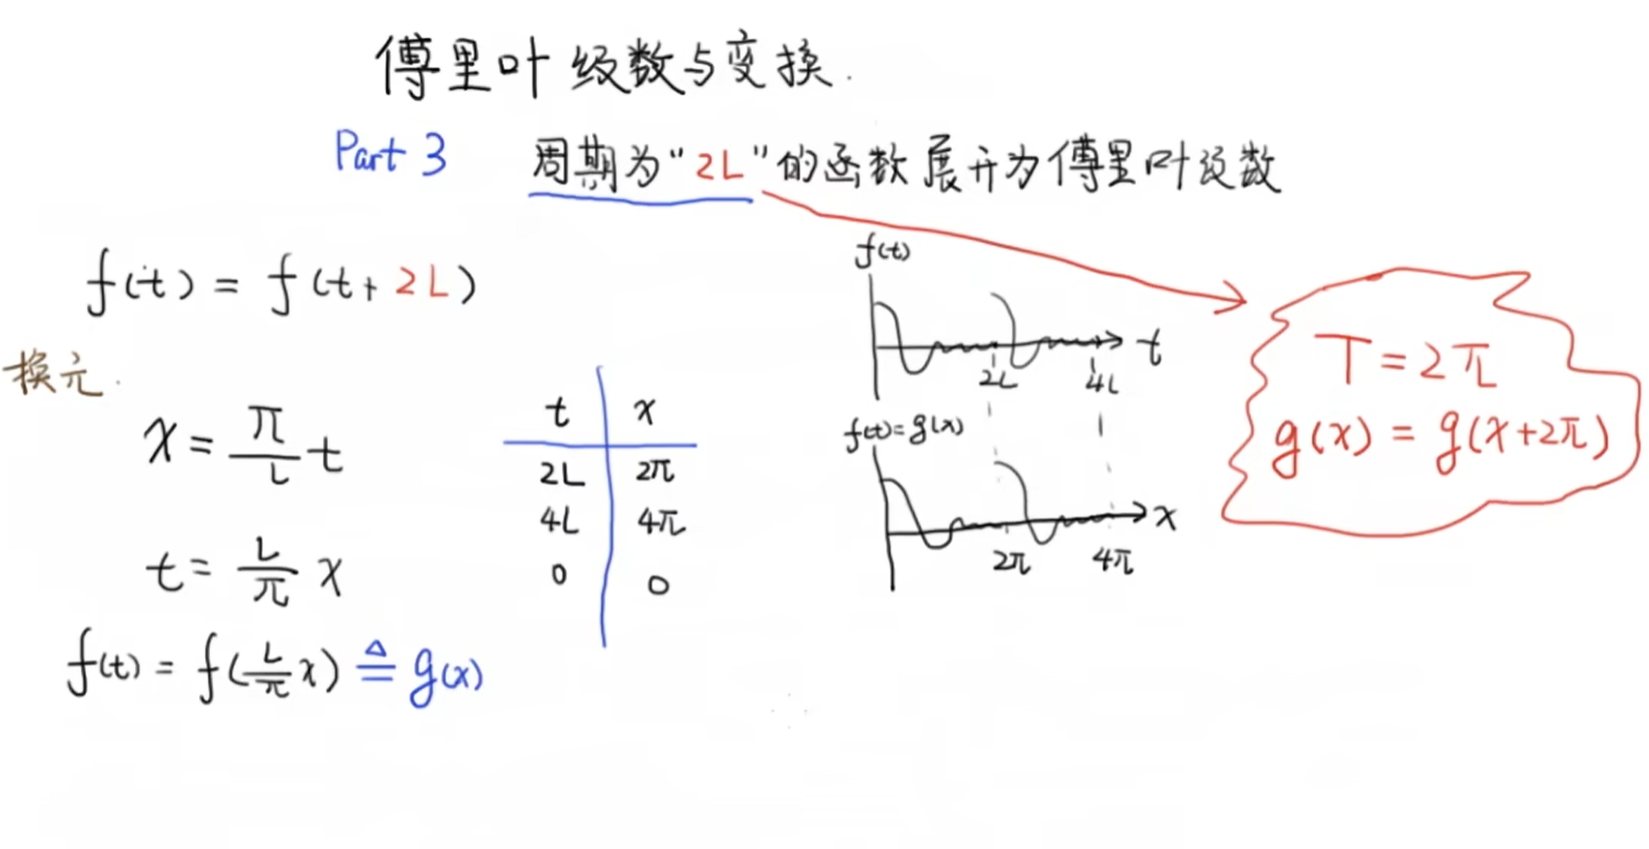 傅里叶级数与变换.
Part 3 周期为"2L"的函数展开为傅里叶级数
f(t) = f(t+2L)
换元.
x = π/L t
t = L/π x
f(t) = f(L/π x) ≜ g(x)
t x
2L 2π
4L 4π
0 0
f(t)
t
2L 4L
f(t)=g(x)
x
2π 4π
T = 2π
g(x) = g(x+2π)